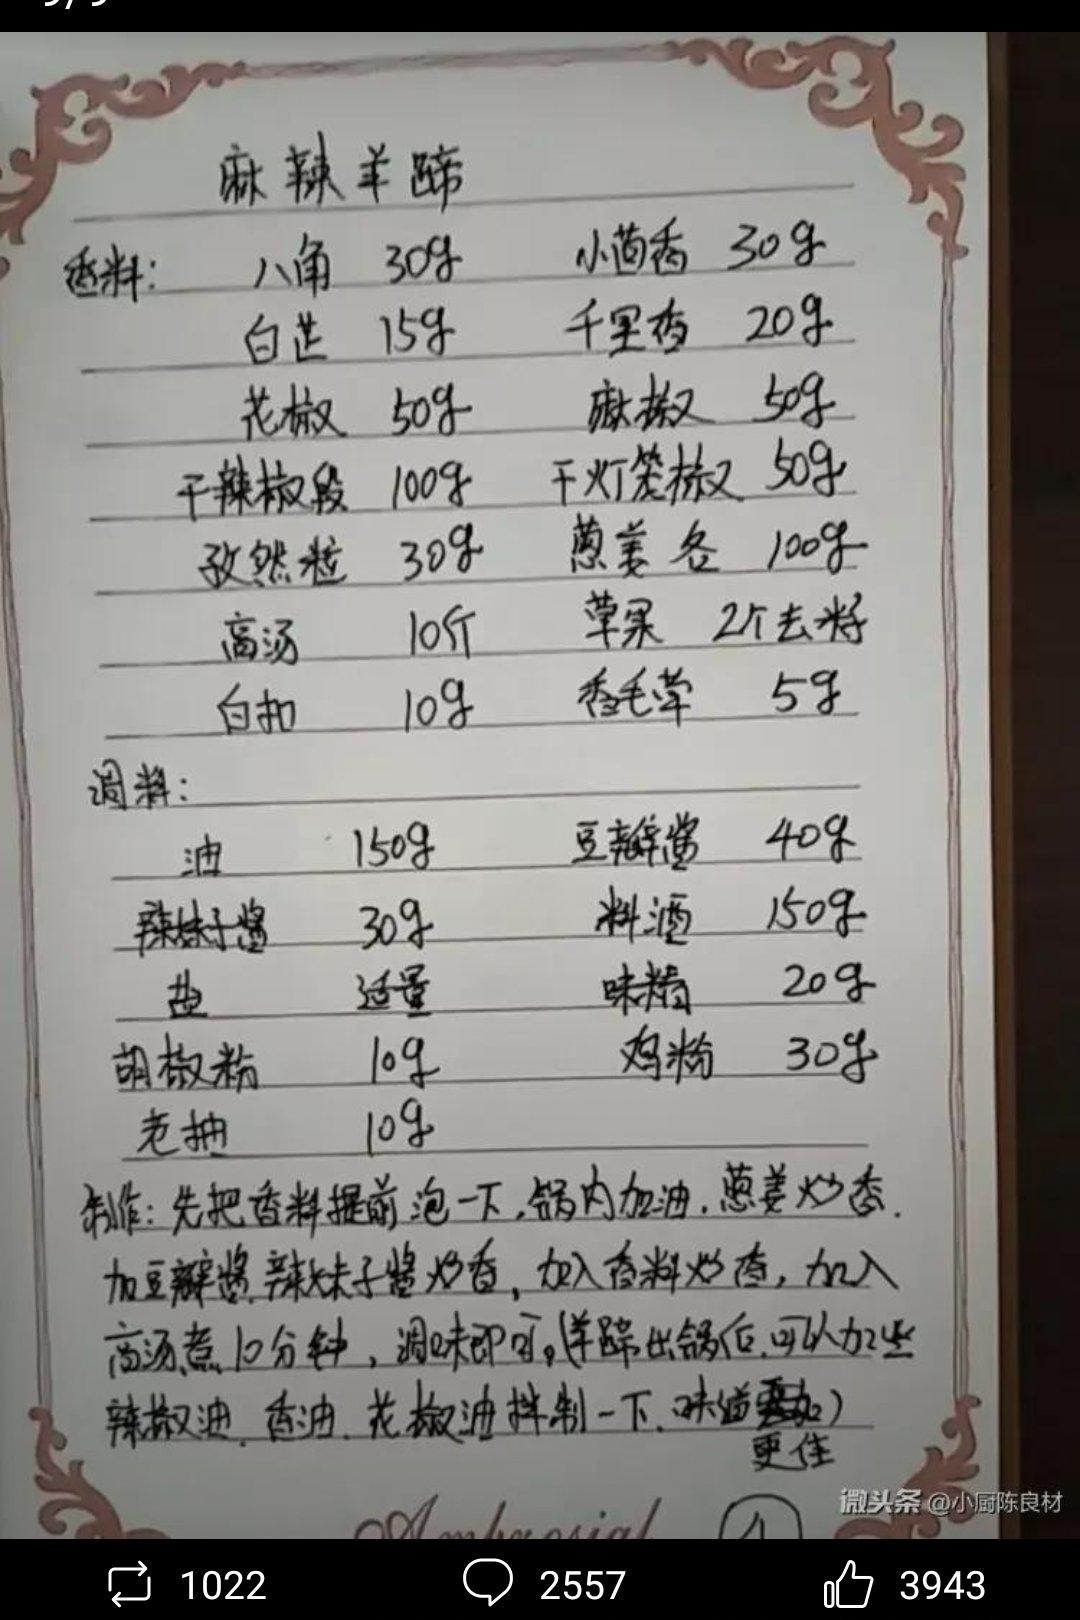 麻辣羊蹄
香料: 八角 30g 小茴香 30g
白芷 15g 千里香 20g
花椒 50g 麻椒 50g
干辣椒段 100g 干灯笼椒 50g
孜然粒 30g 葱姜各 100g
高汤 10斤 草果 2个去籽
白扣 10g 香毛草 5g
调料:
油 150g 豆瓣酱 40g
辣妹子酱 30g 料酒 150g
盐 适量 味精 20g
胡椒粉 10g 鸡粉 30g
老抽 10g
制作: 先把香料提前泡一下,锅内加油,葱姜炒香.
加豆瓣酱.辣妹子酱炒香,加入香料炒香,加入
高汤煮10分钟,调味即可。(羊蹄出锅后.可以加些
辣椒油.香油.花椒油拌制一下.味道)
更佳
微头条 @小厨陈良材
1022 2557 3943